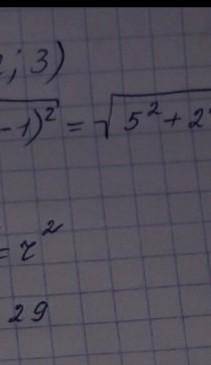 ; 3)
-1)² = √5² + 2²
= r²
29